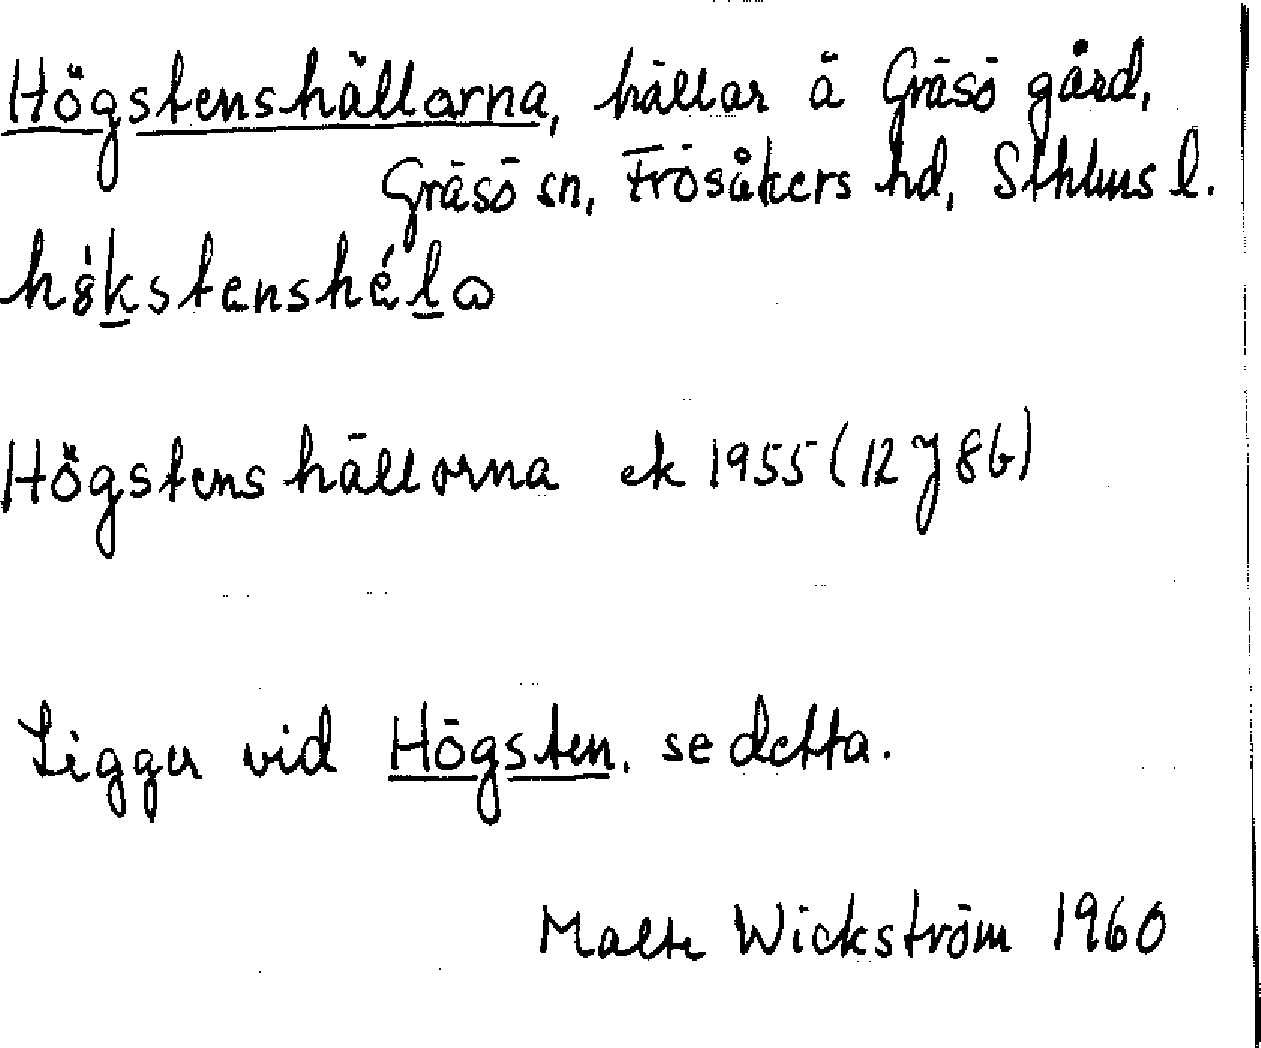 Högstenshällarna, hällar å Gräsö gård,
Gräsö sn, Frösåkers hd, Sthlms l.
Högstenshällorna ek 1955 (12 J 8b)
Ligger vid Högsten, se detta.
Malte Wickström 1960